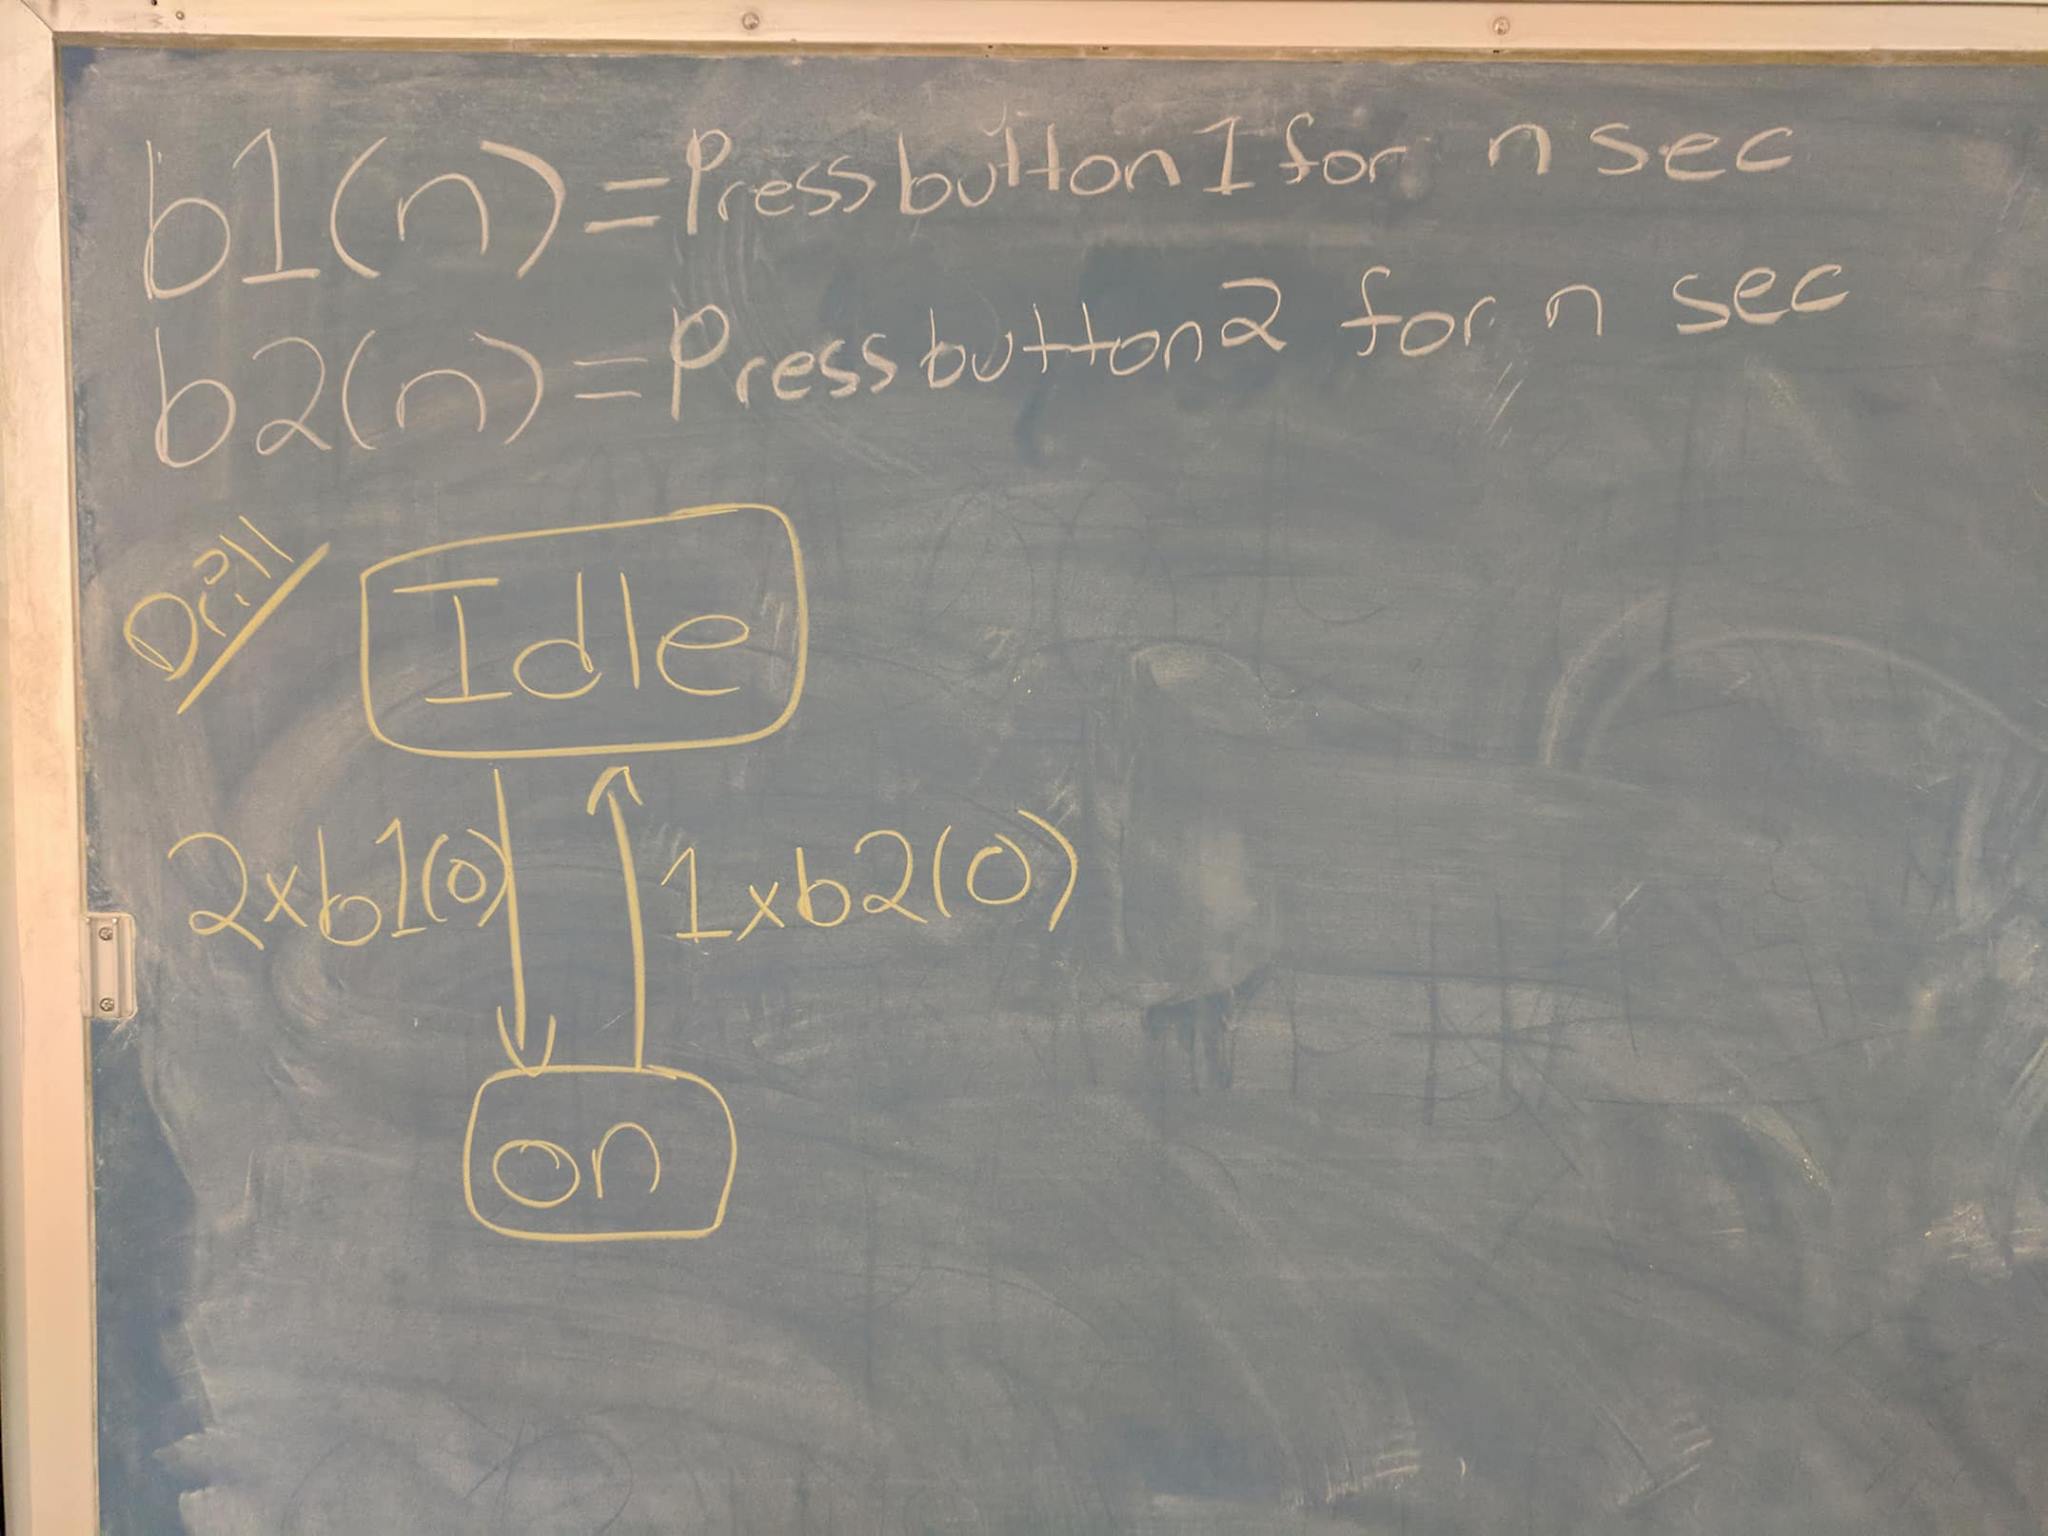 b1(n)=Press button 1 for n sec
b2(n)=Press button 2 for n sec
Drill
Idle
2xb1(0)
1xb2(0)
on